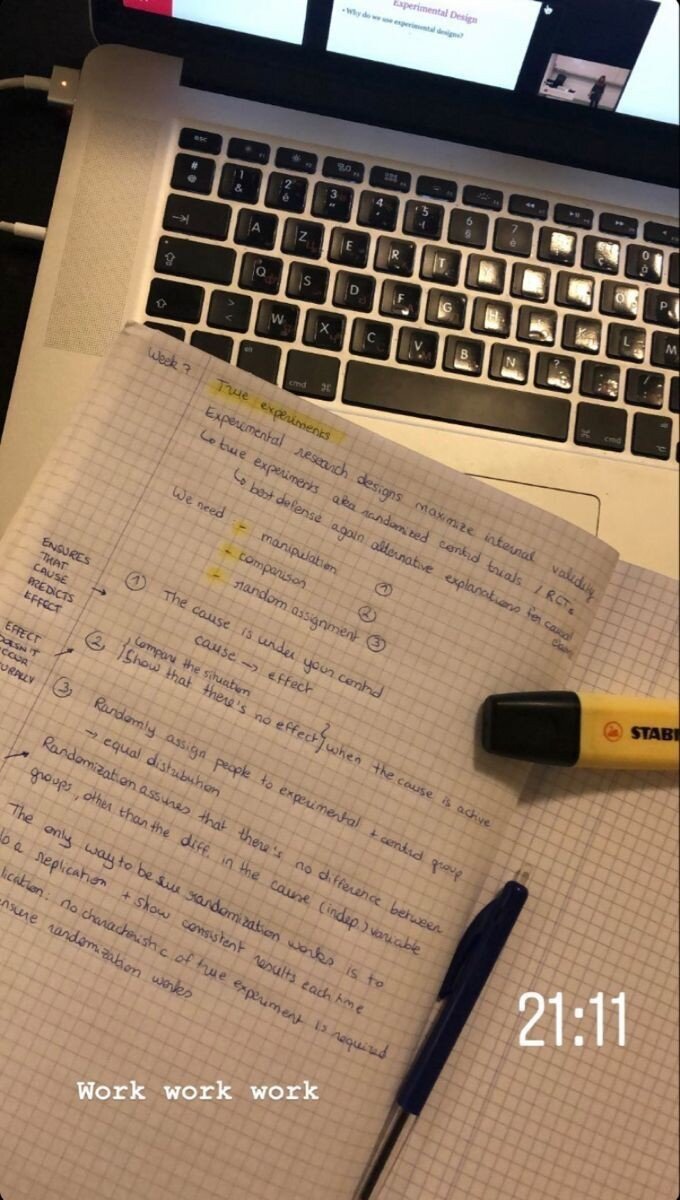 Experimental Design
• Why do we use experimental designs?
esc
# @
1 &
2 é
3 "
4 '
5 (
6 §
7 è
0 à
A Z E R T Y U I O P
Q S D F G H J K L M
> <
W X C V B N ? /
cmd ⌘
⌘ cmd
Week 7
True experiments
Experimental research designs maximize internal validity
↳ true experiments aka randomized control trials / RCTs
↳ best defense again alternative explanations for causal
We need
- manipulation ①
- comparison ②
- random assignment ③
ENSURES
THAT
CAUSE
PREDICTS
EFFECT
→ ① The cause is under your control
cause → effect
EFFECT
DOESN'T
OCCUR
URALLY
② Compare the situation
Show that there's no effect } when the cause is active
③ Randomly assign people to experimental + control group
→ equal distribution
Randomization assures that there's no difference between
groups, other than the diff. in the cause (indep.) variable
The only way to be sure randomization works is to
do a replication + show consistent results each time
lication: no characteristic of true experiment is required
ensure randomization works
STABI
21:11
Work work work